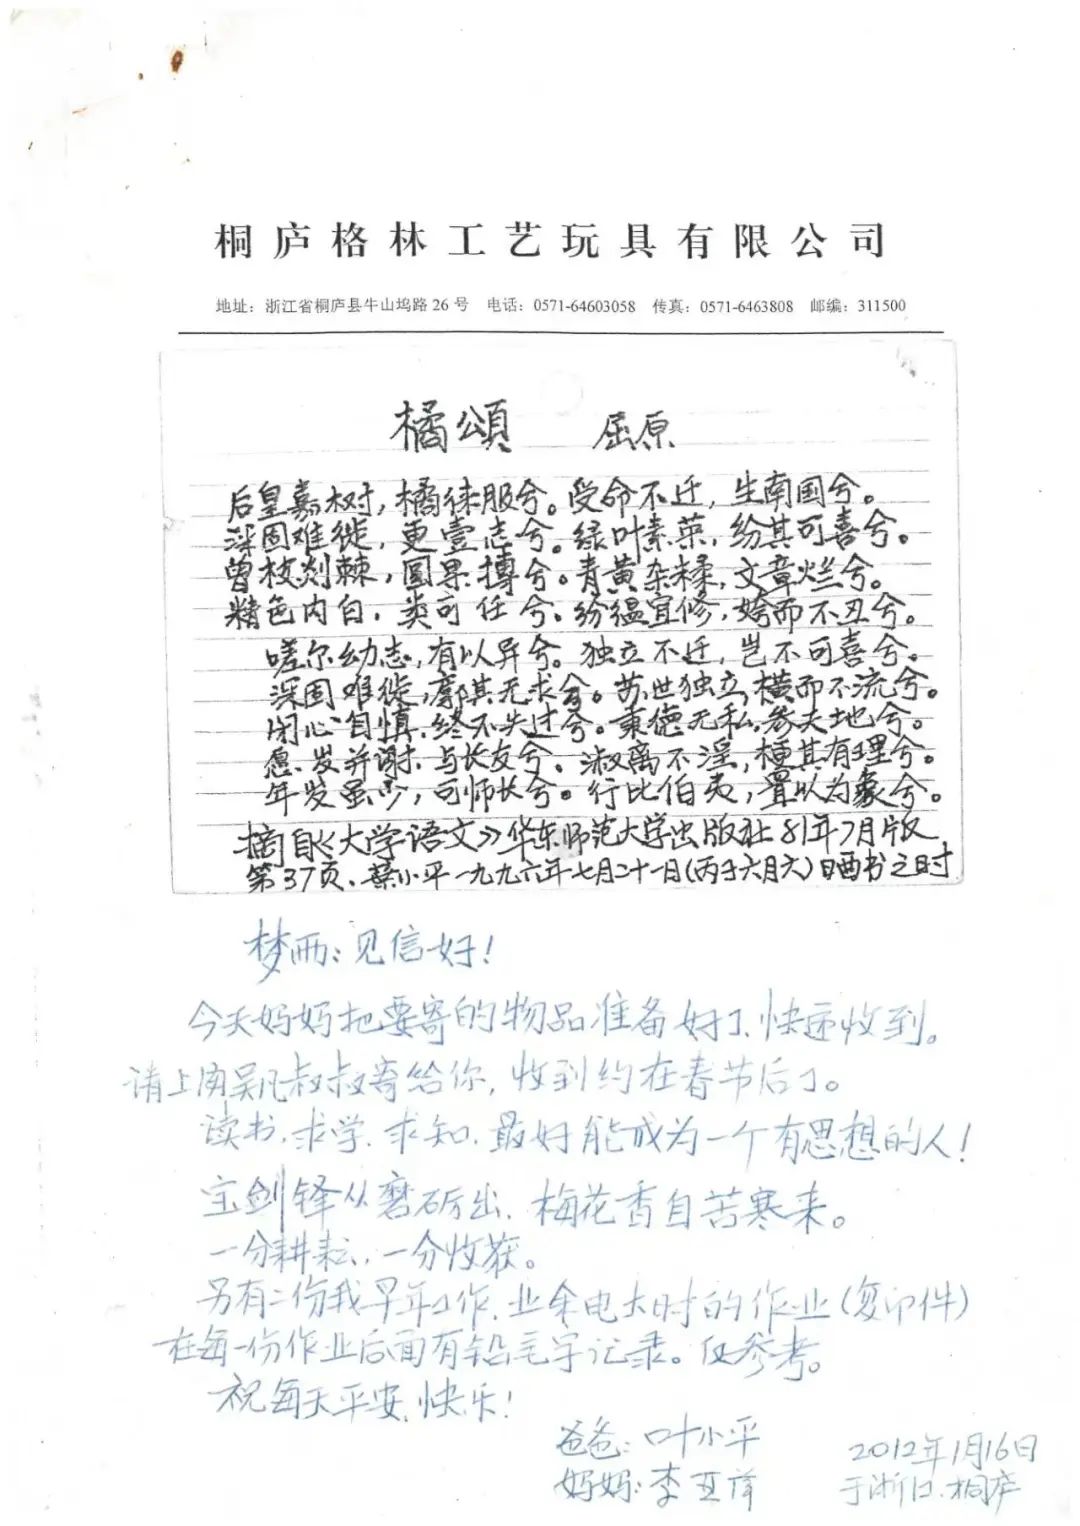 桐庐格林工艺玩具有限公司
地址：浙江省桐庐县牛山坞路26号 电话：0571-64603058 传真：0571-6463808 邮编：311500
橘頌 屈原
后皇嘉树，橘徕服兮。受命不迁，生南国兮。
深固难徙，更壹志兮。绿叶素荣，纷其可喜兮。
曾枝剡棘，圆果搏兮。青黄杂糅，文章烂兮。
精色内白，类可任兮。纷缊宜修，姱而不丑兮。
嗟尔幼志，有以异兮。独立不迁，岂不可喜兮。
深固难徙，廓其无求兮。苏世独立，横而不流兮。
闭心自慎，终不失过兮。秉德无私，参天地兮。
愿岁并谢，与长友兮。淑离不淫，梗其有理兮。
年岁虽少，可师长兮。行比伯夷，置以为象兮。
摘自《大学语文》华东师范大学出版社81年7月版
第37页、小平一九九六年七月二十一日(丙子六月六)日晒书之时
梦西：见信好！
今天妈妈把要寄的物品准备好了、快递收到。
请上海吴凡叔叔寄给你，收到约在春节后了。
读书、求学、求知、最好能成为一个有思想的人！
宝剑锋从磨砺出，梅花香自苦寒来。
一分耕耘，一分收获。
另有二份我早年工作、业余电大时的作业(复印件)
在每一份作业后面有铅毛字记录。仅参考。
祝每天平安、快乐！
爸爸：叶小平 2012年1月16日
妈妈：李亚萍 于浙江.桐庐